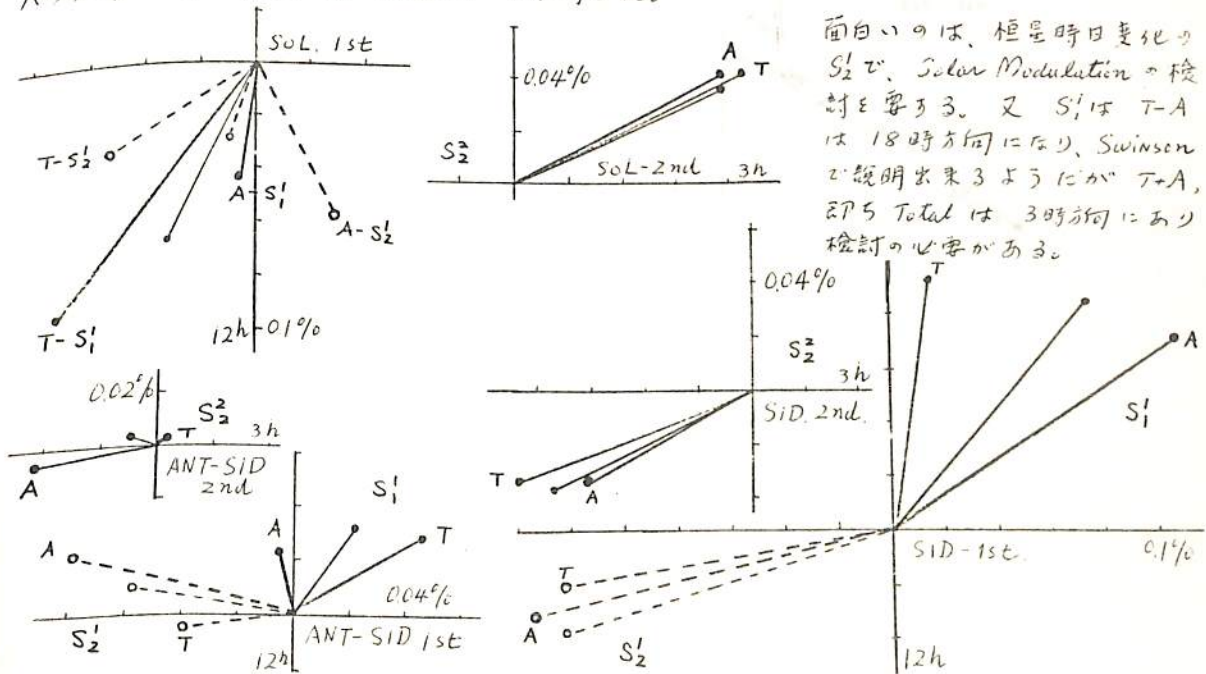 SOL. 1st
T-S₂¹
A S₁¹
A-S₂¹
T-S₁¹
12h 0.1%
0.04%
A
T
S₂²
SOL-2nd 3h
面白いのは、恒星時日変化の
S₂¹で、Solar Modulationの検
討を要する。又 S₁¹は T-A
は 18時方向になり、Swinson
で説明出来るようだが T+A,
即ち Total は 3時方向にあり
検討の必要がある。
0.02%
S₂²
T 3h
ANT-SID
2nd
A
0.04%
S₂²
3h
SID. 2nd.
T
A
T
A
S₁¹
S₁¹
A
T
A
0.04%
S₂¹
T
ANT-SID 1st
12h
SID-1st.
0.1%
T
A
S₂¹
12h